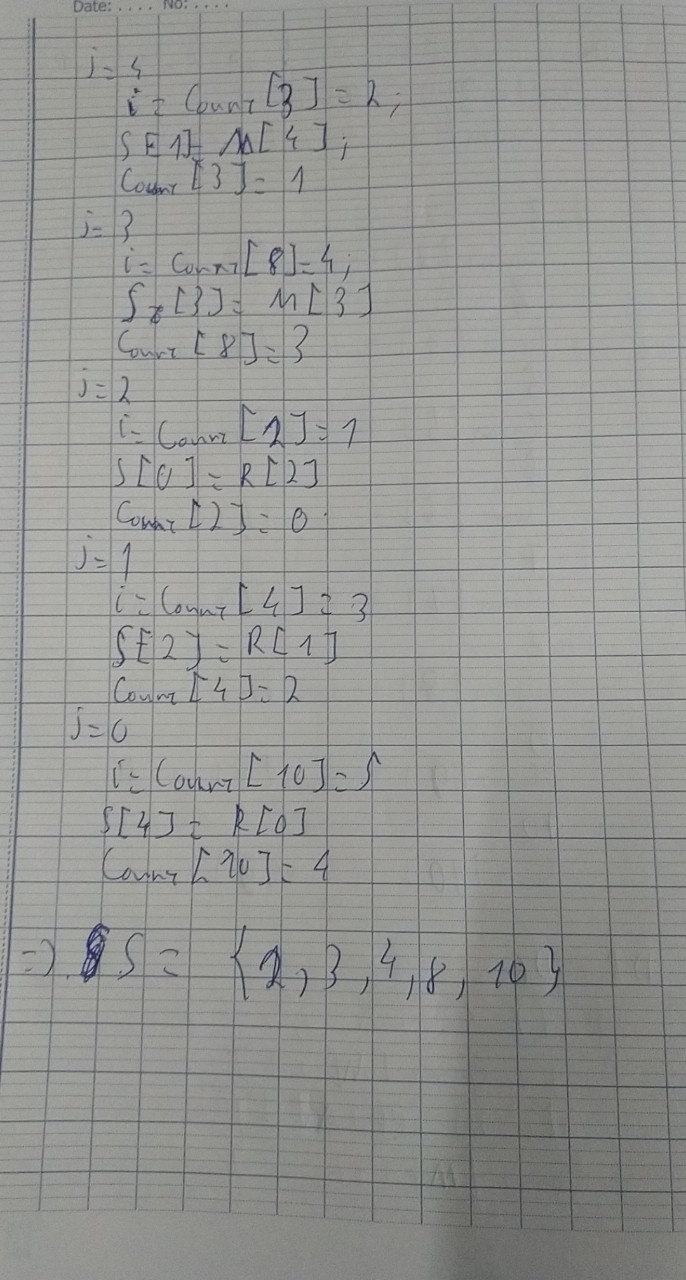 Date: .... No: ....
j= 4
i= Count [3] = 2;
S[1]= M[4];
Count [3]= 1
j= 3
i= Count[8]=4;
S[3]= M[3]
Count [8]=3
j=2
i= Count [2]=1
S[0]=R[2]
Count [2]=0
j=1
i=Count[4]=3
S[2]=R[1]
Count[4]=2
j=0
i=Count[10]=5
S[4]= R[0]
Count [10]=4
=> S = {2,3,4,8,10}